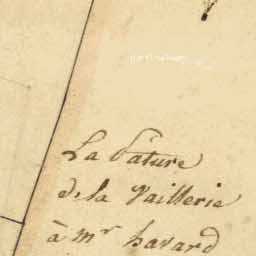 La Pature
de la Vaillerie
à mr havard